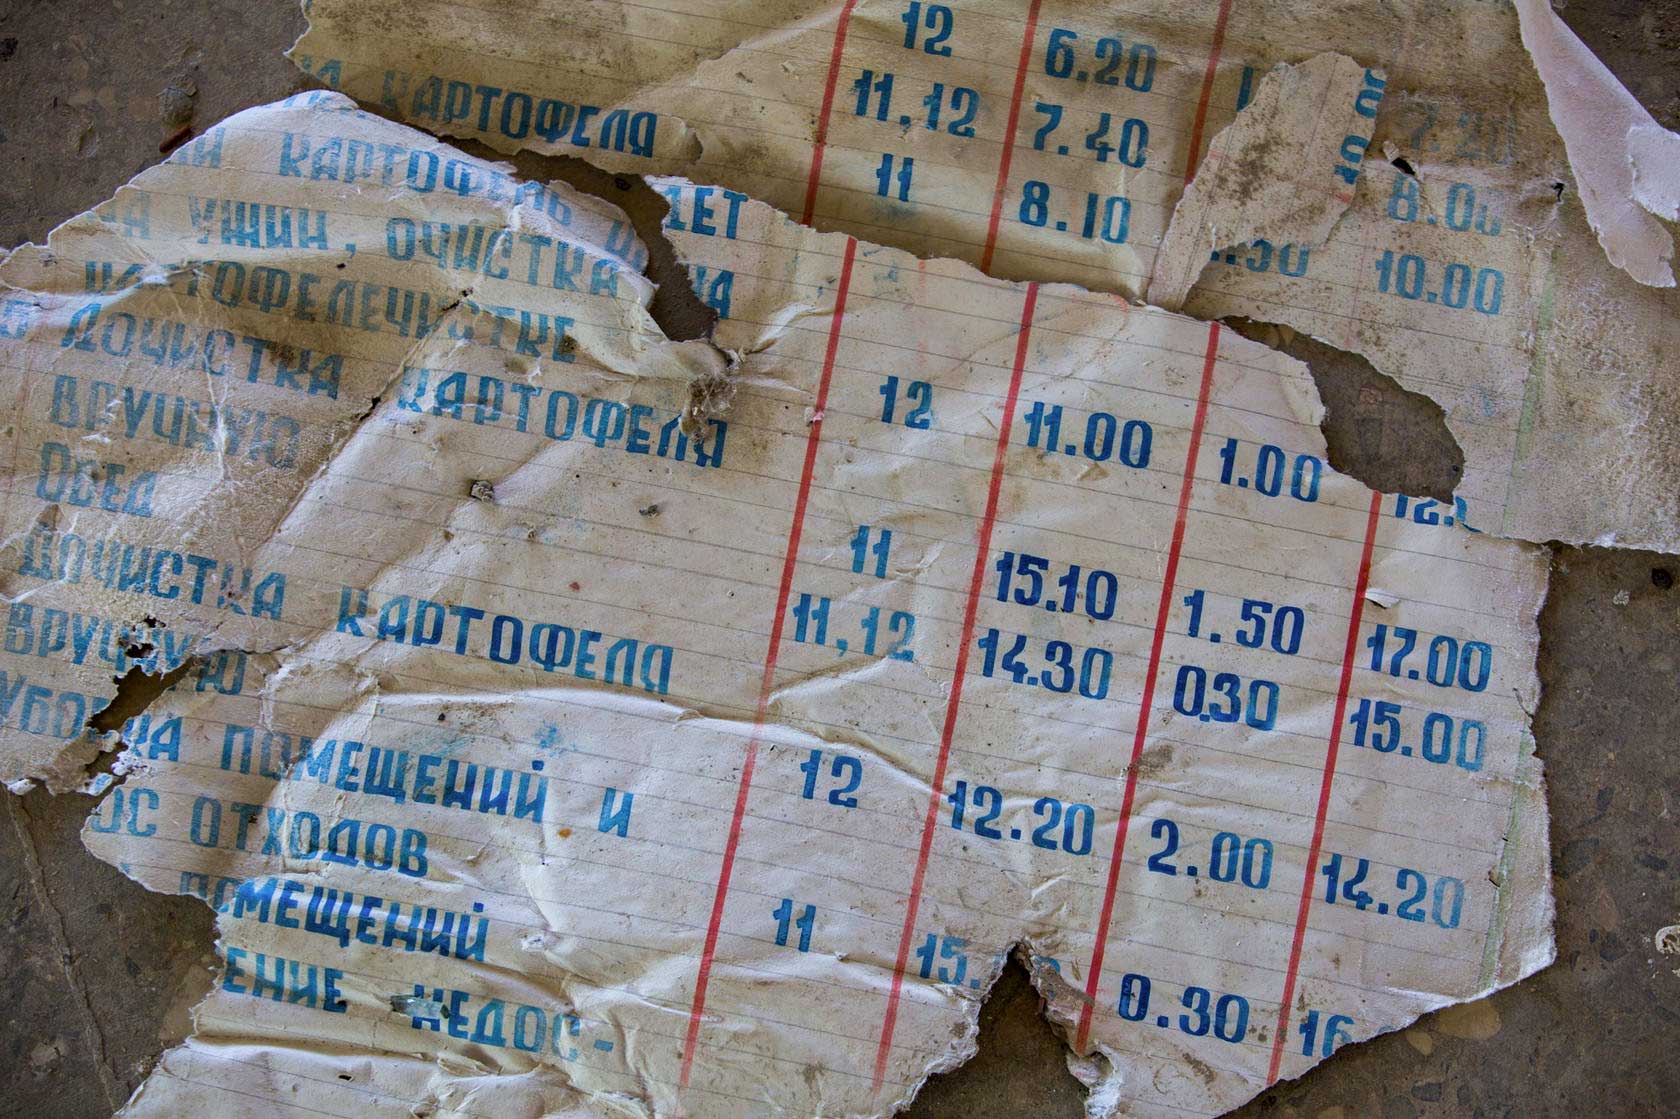 12 6.20
КАРТОФЕЛЯ 11.12 7.40 7.20
11 8.10 8.00
КАРТОФЕЛЬ И
НА УЖИН, ОЧИСТКА НА
.30 10.00
КАРТОФЕЛЕЧИСТКЕ
ДОЧИСТКА КАРТОФЕЛЯ 12 11.00 1.00 12.
ВРУЧНУЮ
ОБЕД 11 15.10 1.50 17.00
ДОЧИСТКА КАРТОФЕЛЯ 11,12 14.30 0.30 15.00
ВРУЧНУЮ
УБОРКА ПОМЕЩЕНИЙ И 12 12.20 2.00 14.20
ОС ОТХОДОВ
ПОМЕЩЕНИЙ 11 15. 0.30 16
ЕНИЕ НЕДОС-